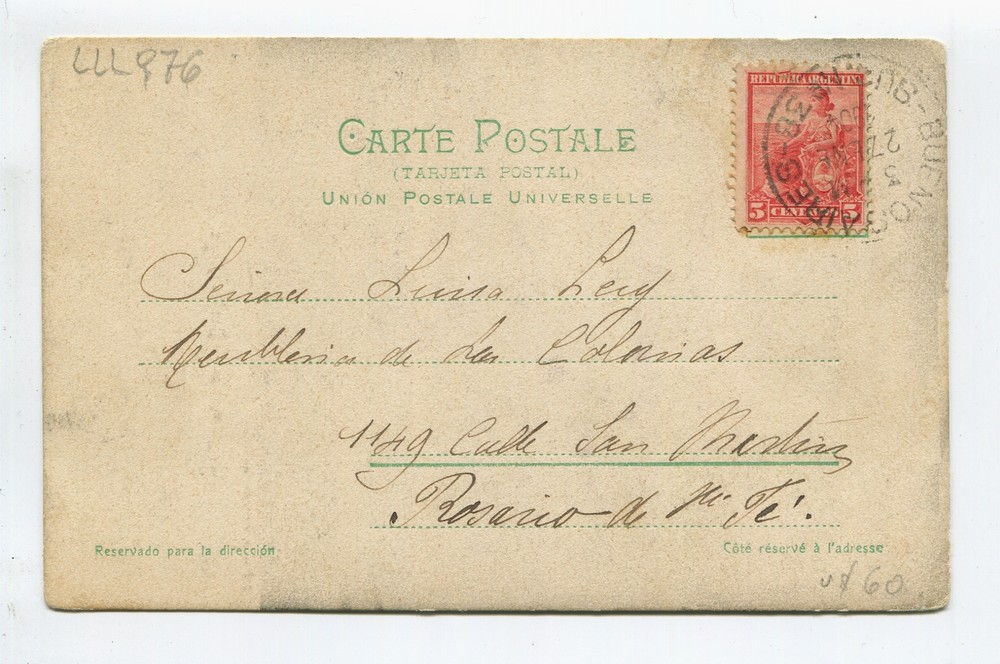 LLL976
REPUBLICA ARGENTINA
5 CENTAVOS 5
BUENOS AIRES
CARTE POSTALE
(TARJETA POSTAL)
UNIÓN POSTALE UNIVERSELLE
Señora Luisa Levy
Muebleria de Las Colonias
1149 Calle San Martin
Rosario de Sta Fé.
Reservado para la dirección
Côté réservé à l'adresse
60